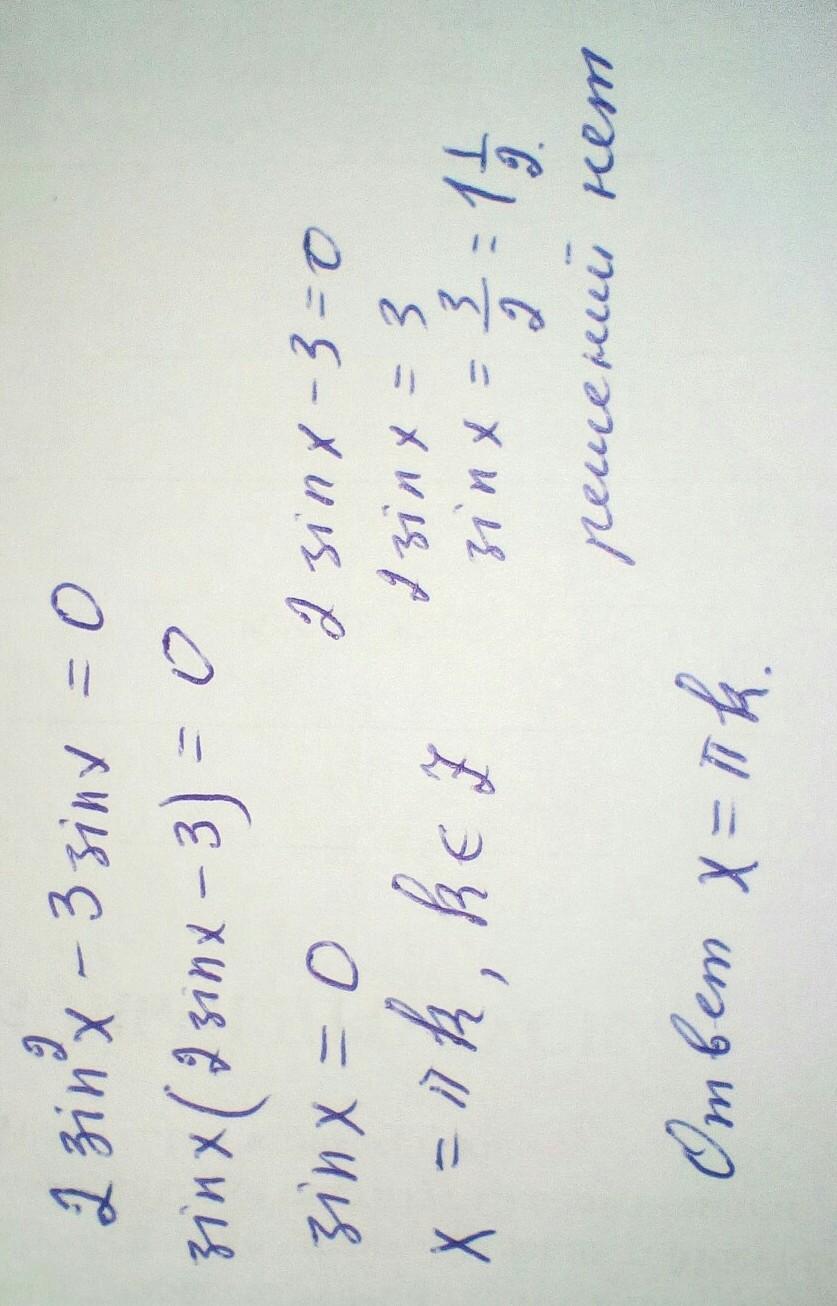 2 sin² x - 3 sin x = 0
sin x (2 sin x - 3) = 0
sin x = 0
2 sin x - 3 = 0
x = πk, k ∈ Z
2 sin x = 3
sin x = 3/2 = 1 1/2
решений нет
Ответ x = πk.